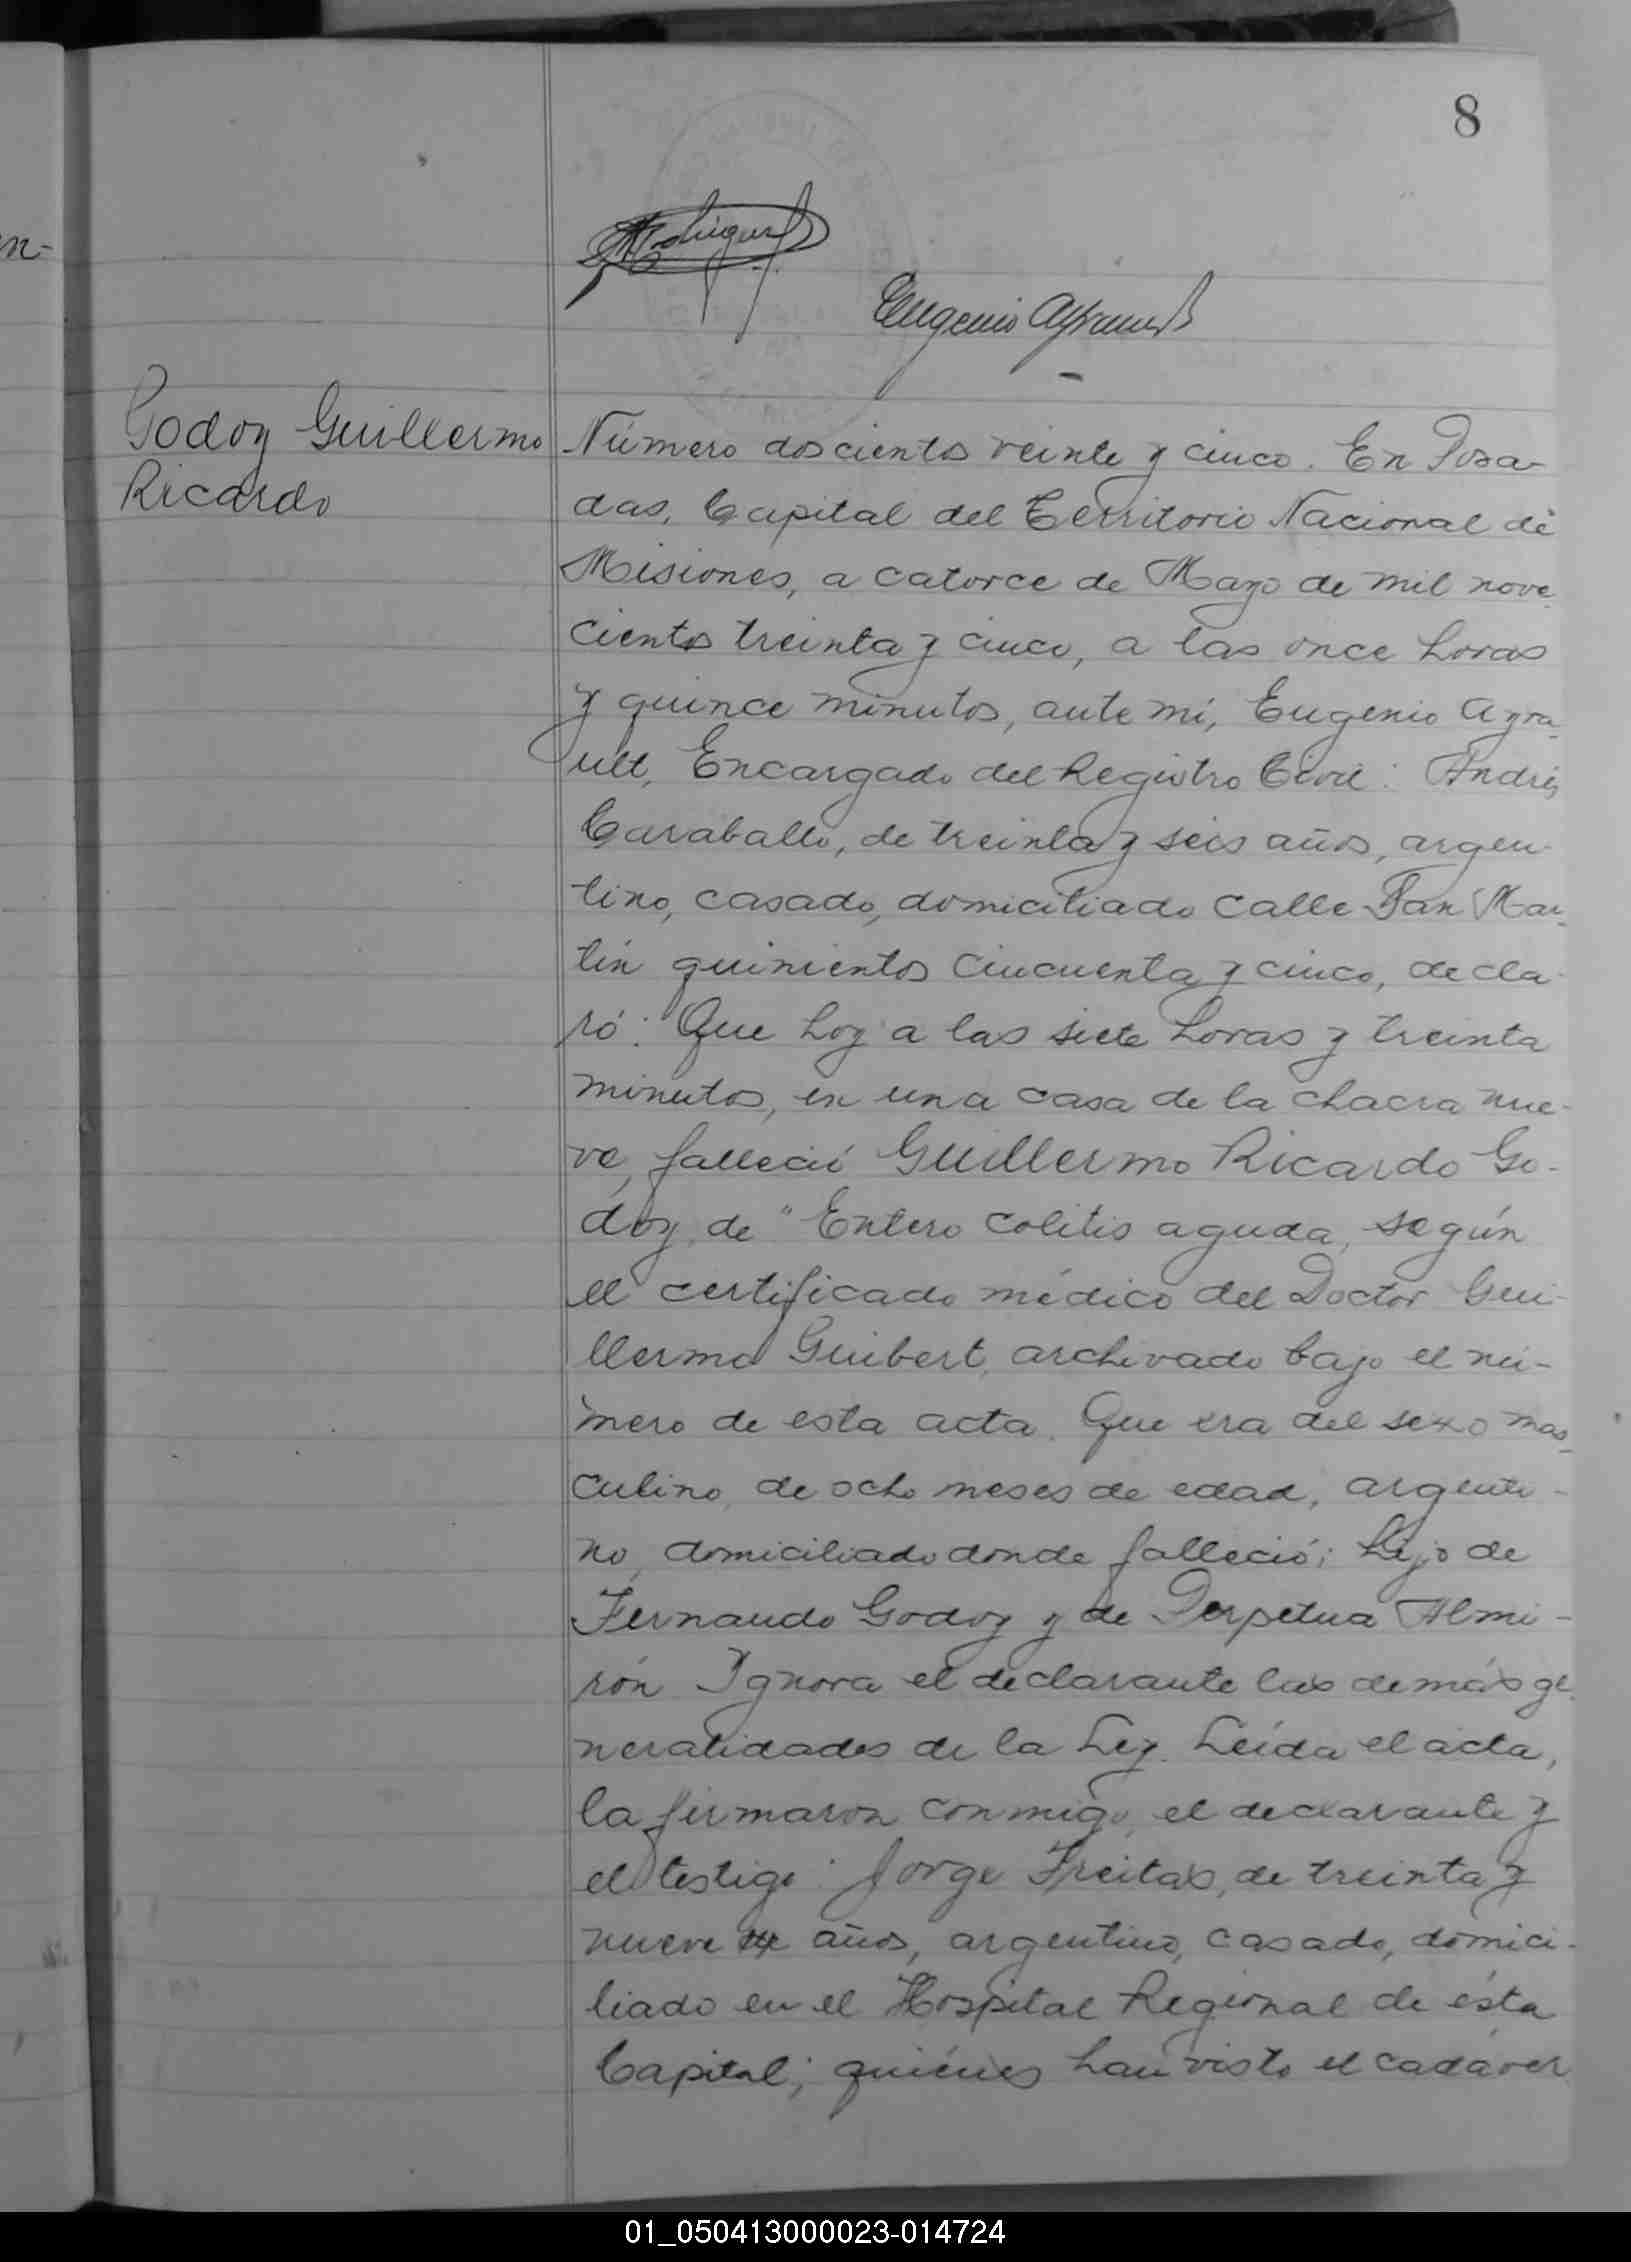 8
n-
Eugenio Ayrault
Godoy Guillermo
Ricardo
Número doscientos veinte y cinco. En Posa-
das, Capital del Territorio Nacional de
Misiones, a catorce de Mayo de mil nove
cientos treinta y cinco, a las once horas
y quince minutos, ante mí, Eugenio Ayra-
ult, Encargado del Registro Civil: Andrés
Caraballo, de treinta y seis años, argen-
tino, casado, domiciliado calle San Mar-
tín quinientos cincuenta y cinco, decla-
ró: Que hoy a las siete horas y treinta
minutos, en una casa de la chacra nue-
ve, falleció Guillermo Ricardo Go-
doy, de "Entero colitis aguda, según
el certificado médico del Doctor Gui-
llermo Guibert, archivado bajo el nú-
mero de esta acta. Que era del sexo mas-
culino, de ocho meses de edad, argenti-
no, domiciliado donde falleció; hijo de
Fernando Godoy y de Perpetua Almi-
rón Ignora el declarante las demás ge-
neralidades de la Ley. Leída el acta,
la firmaron conmigo, el declarante y
el testigo: Jorge Freitas, de treinta y
nueve años, argentino, casado, domici-
liado en el Hospital Regional de ésta
Capital; quiénes han visto el cadáver
01_050413000023-014724